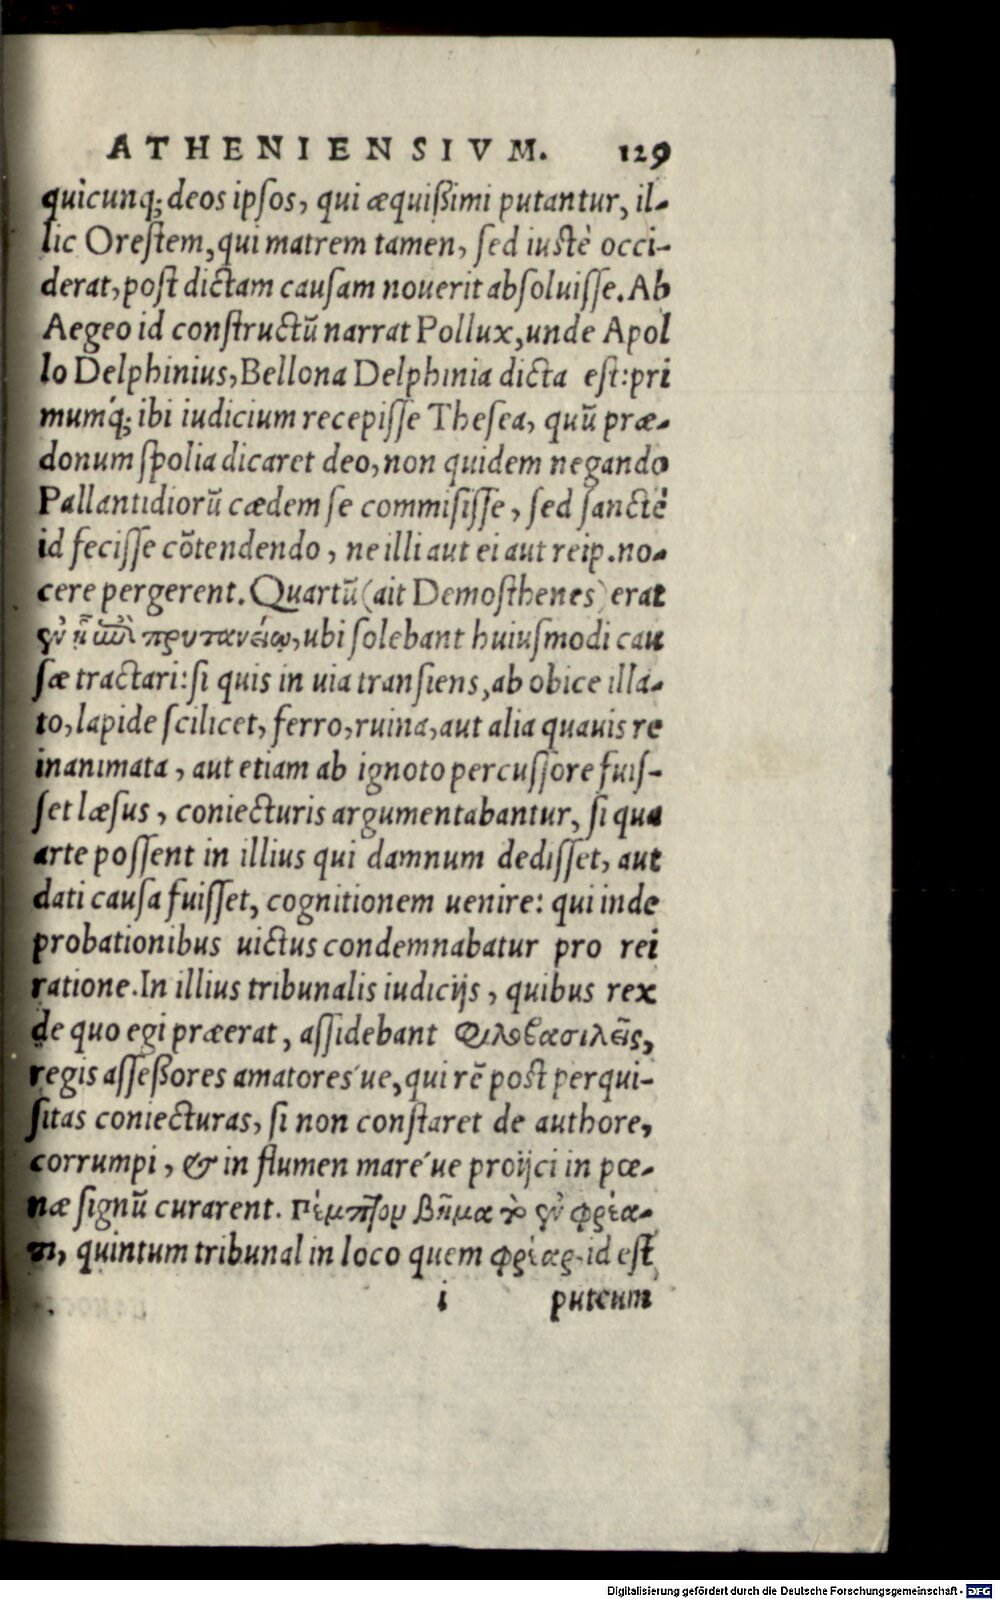 ATHENIENSIVM. 129
quicunq; deos ipsos, qui æquißimi putantur, il-
lic Orestem, qui matrem tamen, sed iustè occi-
derat, post dictam causam nouerit absoluisse. Ab
Aegeo id constructũ narrat Pollux, unde Apol
lo Delphinius, Bellona Delphinia dicta est: pri
mumq́; ibi iudicium recepisse Thesea, quũ præ-
donum spolia dicaret deo, non quidem negando
Pallantidiorũ cædem se commisisse, sed sanctè
id fecisse cõtendendo, ne illi aut ei aut reip. no-
cere pergerent. Quartũ (ait Demosthenes) erat
πρυτανείῳ, ubi solebant huiusmodi cau
sæ tractari: si quis in uia transiens, ab obice illa-
to, lapide scilicet, ferro, ruina, aut alia quauis re
inanimata, aut etiam ab ignoto percussore fuis-
set læsus, coniecturis argumentabantur, si qua
arte possent in illius qui damnum dedisset, aut
dati causa fuisset, cognitionem uenire: qui inde
probationibus uictus condemnabatur pro rei
ratione. In illius tribunalis iudicijs, quibus rex
de quo egi præerat, assidebant Φιλοβασιλεῖς,
regis asseßores amatores´ue, qui rẽ post perqui-
sitas coniecturas, si non constaret de authore,
corrumpi, & in flumen mare´ue proijci in pœ-
næ signũ curarent. Πέμπτον βῆμα τὸ ἐν φρέα-
τι, quintum tribunal in loco quem φρέαρ id est
i puteum
Digitalisierung gefördert durch die Deutsche Forschungsgemeinschaft - DFG